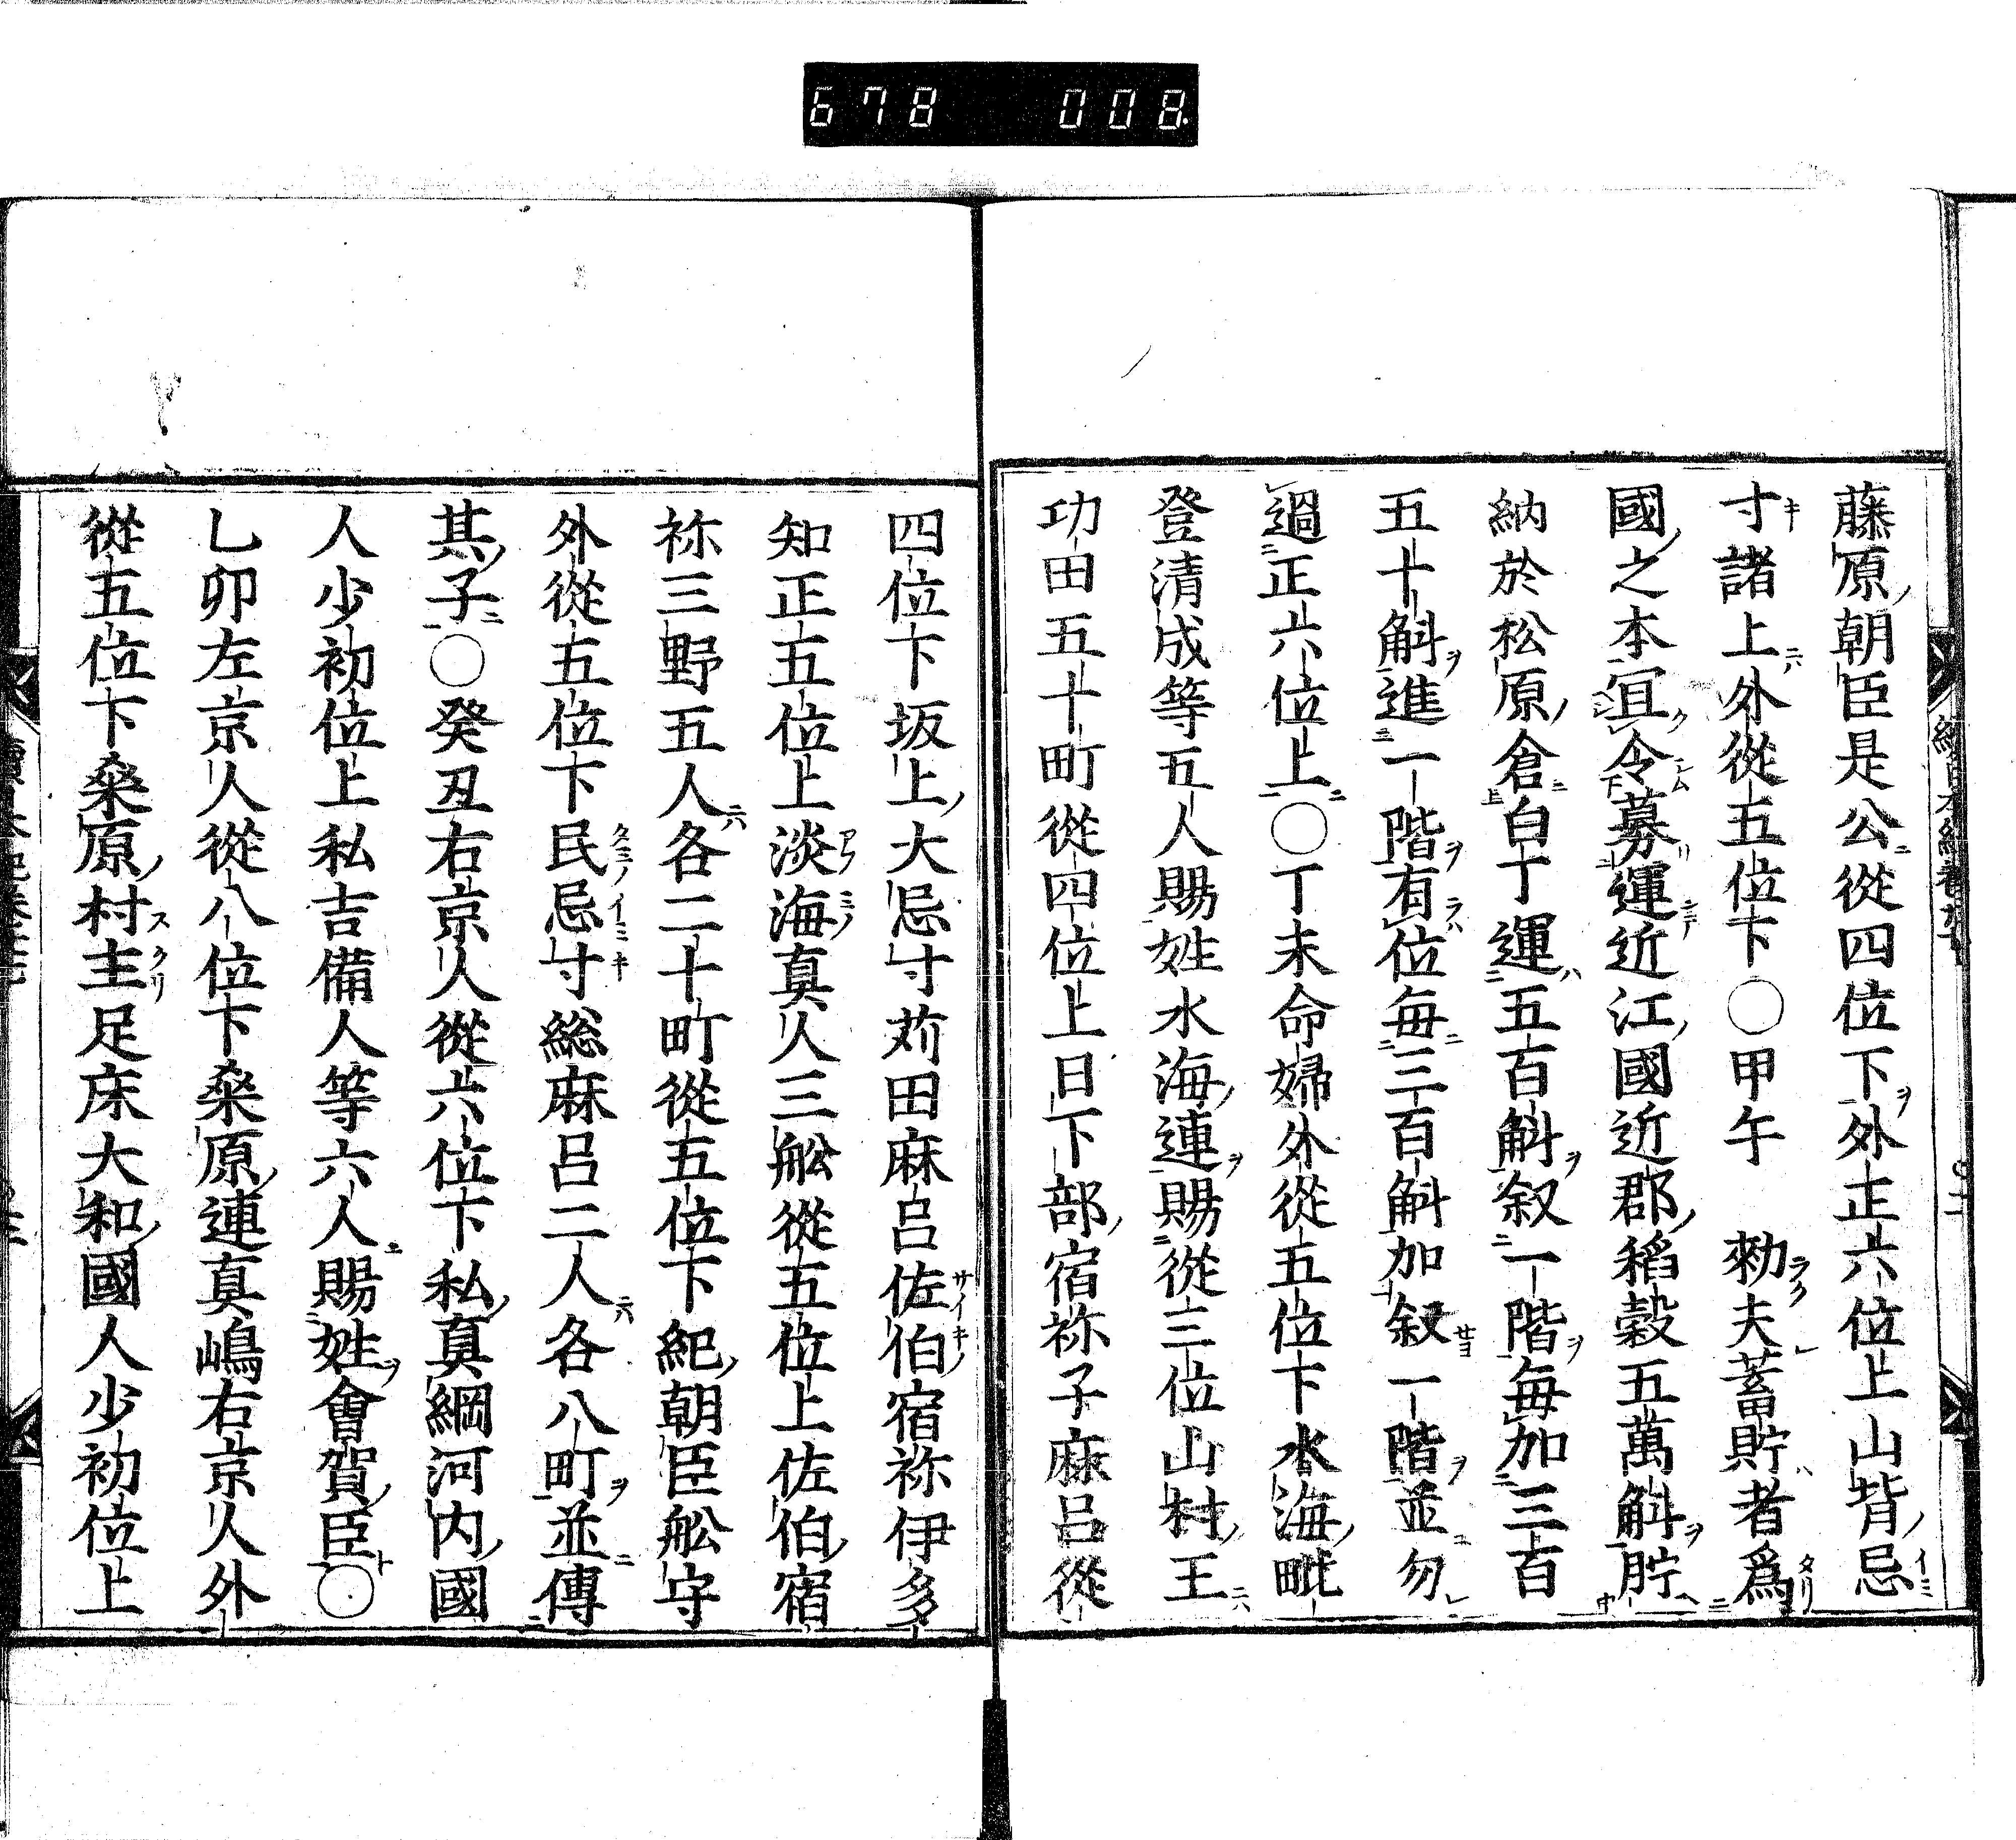 678 008
藤原朝臣是公從四位下外正六位上山背忌
寸諸上外從五位下〇甲午 勅夫蓄貯者爲
國之本宜令募運近江國近郡稻穀五萬斛貯
納於松原倉白丁運五百斛叙一階毎加三百
五十斛進一階有位毎三百斛加叙一階並勿
過正六位上〇丁未命婦外從五位下水海毗
登清成等五人賜姓水海連賜從三位山村王
功田五十町從四位上日下部宿祢子麻呂從
四位下坂上大忌寸苅田麻呂佐伯宿祢伊多
知正五位上淡海真人三舩從五位上佐伯宿
祢三野五人各二十町從五位下紀朝臣舩守
外從五位下民忌寸総麻呂二人各八町並傳
其子〇癸丑右京人從六位下私真綱河内國
人少初位上私吉備人等六人賜姓會賀臣〇
乚卯左京人從八位下桒原連真嶋右京人外
從五位下桒原村主足床大和國人少初位上